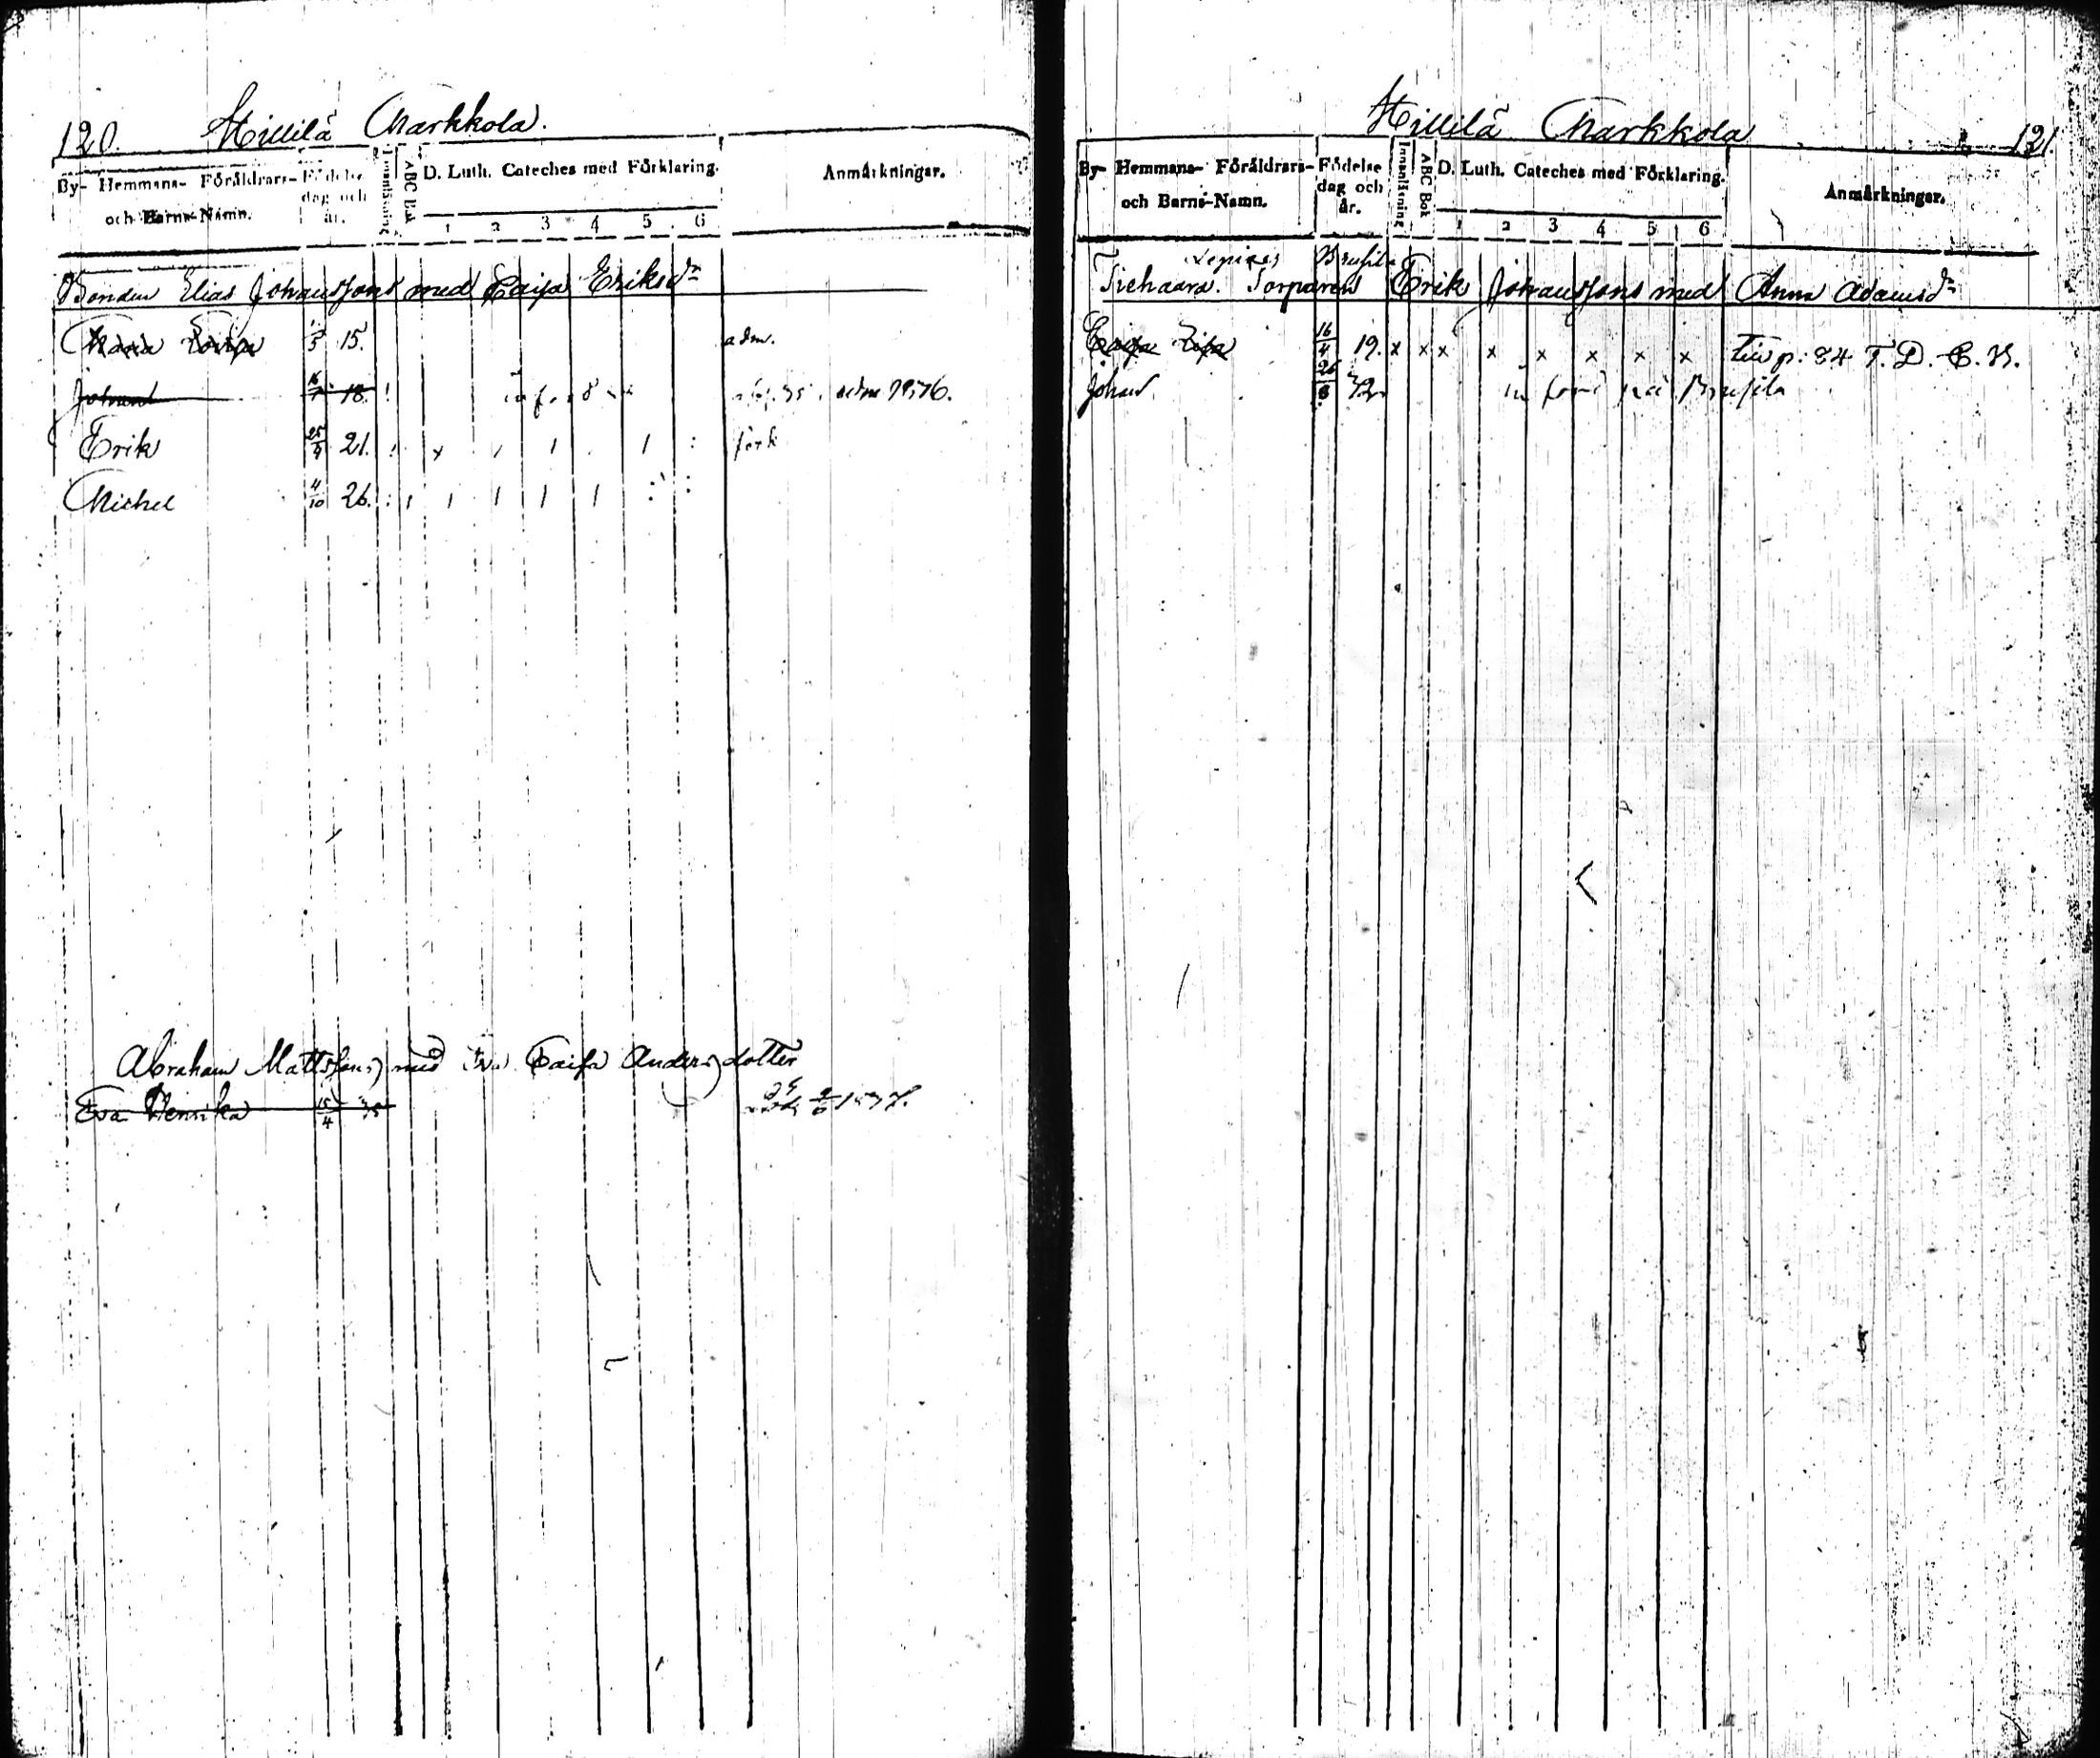 120. Hillilä Markkola.
By- Hemmans- Föräldrars- och Barns-Namn.
Födelse dag och år.
Innanläsning
ABC Bok
D. Luth. Cateches med Förklaring.
1 2 3 4 5 6
Anmärkningar.
Bonden Elias Johanssons med Caisa Eriksdr
Maria Lovisa 1/5 15. adm.
Johand 18. adm 1836.
Erik 25/9 21. förk
Michel 4/10 26.
Abraham Mattssons med Caisa Andersdotter
Eva Henrika 15/4 35
Hillilä Markkola 121.
By- Hemmans- Föräldrars- och Barns-Namn.
Födelse dag och år.
Innanläsning
ABC Bok
D. Luth. Cateches med Förklaring.
1 2 3 4 5 6
Anmärkningar.
Brusila
Tiehaara. Torparens Erik Johanssons med Anna Adamsdr
Caisa Lisa 16/4 19. x x x x x x x x p: 84 T. D. C. H.
Johan 26/8 32 på Brusila